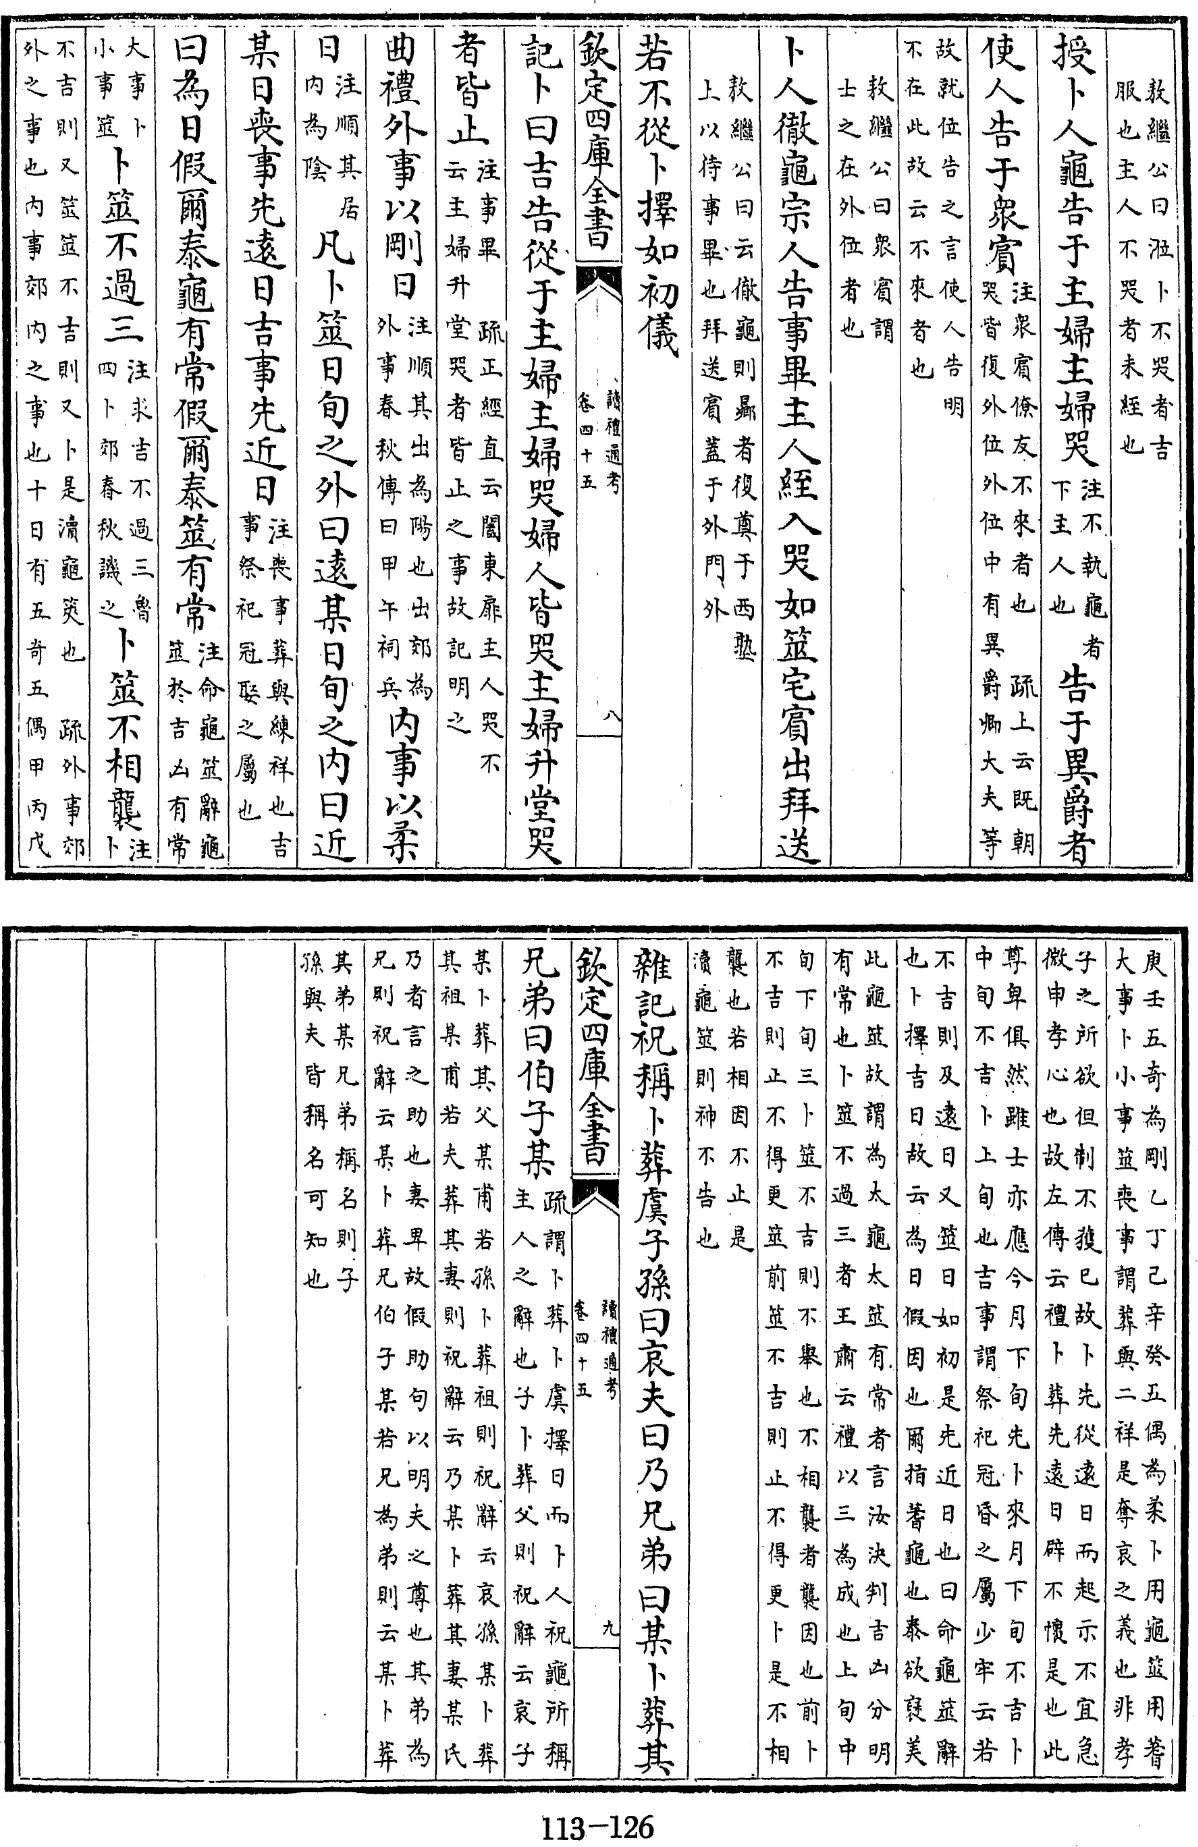 敖繼公曰涖卜不哭者吉
服也主人不哭者未絰也
授卜人龜告于主婦主婦哭注不執龜者下主人也告于異爵者
使人告于衆賓注衆賓僚友不來者也 疏上云既朝哭皆復外位外位中有異爵卿大夫等
故就位告之言使人告明
不在此故云不來者也
敖繼公曰衆賓謂
士之在外位者也
卜人徹龜宗人告事畢主人絰入哭如筮宅賓出拜送
敖繼公曰云徹龜則曏者復奠于西塾
上以待事畢也拜送賓蓋于外門外
若不從卜擇如初儀
欽定四庫全書
讀禮通考
卷四十五
八
記卜曰吉告從于主婦主婦哭婦人皆哭主婦升堂哭
者皆止注事畢 疏正經直云闔東扉主人哭不云主婦升堂哭者皆止之事故記明之
曲禮外事以剛日注順其出為陽也出郊為外事春秋傳曰甲午祠兵内事以柔
日注順其居内為陰凡卜筮日旬之外曰遠某日旬之内曰近
某日喪事先遠日吉事先近日注喪事葬與練祥也吉事祭祀冠娶之屬也
曰為日假爾泰龜有常假爾泰筮有常注命龜筮辭龜筮於吉凶有常
大事卜小事筮卜筮不過三注求吉不過三魯四卜郊春秋譏之卜筮不相襲注卜
不吉則又筮筮不吉則又卜是瀆龜筴也 疏外事郊
外之事也内事郊内之事也十日有五奇五偶甲丙戊
庚壬五奇為剛乙丁己辛癸五偶為柔卜用龜筮用蓍
大事卜小事筮喪事謂葬與二祥是奪哀之義也非孝
子之所欲但制不獲已故卜先從遠日而起示不宜急
微申孝心也故左傳云禮卜葬先遠日辟不懷是也此
尊卑俱然雖士亦應今月下旬先卜來月下旬不吉卜
中旬不吉卜上旬也吉事謂祭祀冠昏之屬少牢云若
不吉則及遠日又筮日如初是先近日也曰命龜筮辭
也卜擇吉日故云為日假因也爾指蓍龜也泰欲褒美
此龜筮故謂為太龜太筮有常者言汝決判吉凶分明
有常也卜筮不過三者王肅云禮以三為成也上旬中
旬下旬三卜筮不吉則不舉也不相襲者襲因也前卜
不吉則止不得更筮前筮不吉則止不得更卜是不相
襲也若相因不止是
瀆龜筮則神不告也
雜記祝稱卜葬虞子孫曰哀夫曰乃兄弟曰某卜葬其
欽定四庫全書
讀禮通考
卷四十五
九
兄弟曰伯子某疏謂卜葬卜虞擇日而卜人祝龜所稱主人之辭也子卜葬父則祝辭云哀子
某卜葬其父某甫若孫卜葬祖則祝辭云哀孫某卜葬
其祖某甫若夫葬其妻則祝辭云乃某卜葬其妻某氏
乃者言之助也妻卑故假助句以明夫之尊也其弟為
兄則祝辭云某卜葬兄伯子某若兄為弟則云某卜葬
其弟某兄弟稱名則子
孫與夫皆稱名可知也
113-126